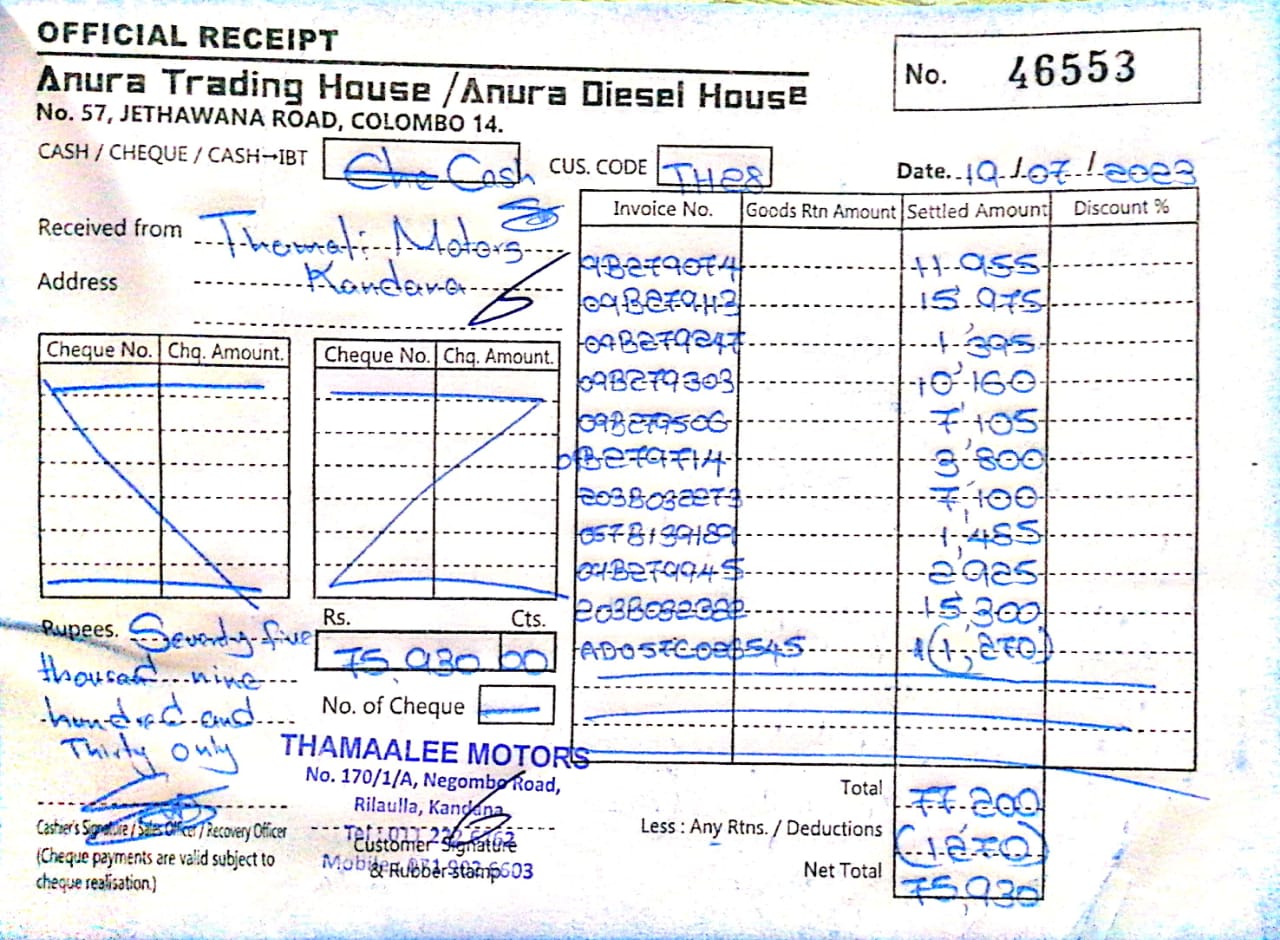 OFFICIAL RECEIPT
Anura Trading House / Anura Diesel House
No. 57, JETHAWANA ROAD, COLOMBO 14.
No. 46553
CASH / CHEQUE / CASH→IBT Che Cash CUS. CODE TH28 Date. 19/07/2023
Received from Thamali Motors
Address Kandana
Cheque No. Chq. Amount. Cheque No. Chq. Amount.
Invoice No. Goods Rtn Amount Settled Amount Discount %
9B279074 11 955
09B279113 15 975
09B279247 1,395
09B279303 10,160
09B279506 7,105
09B279714 3,800
203B032273 7,100
057B139189 1,485
09B279945 2,925
203B032322 15,300
AD057C023545 (1,270)
Rupees. Seventy five
thousand nine
hundred and
Thirty Only
Rs. Cts.
75,930 00
No. of Cheque
THAMAALEE MOTORS
No. 170/1/A, Negombo Road,
Rilaulla, Kandana
Cashier's Signature / Sales Officer / Recovery Officer
(Cheque payments are valid subject to
cheque realisation.)
Customer Signature
& Rubber stamp
Total 77,200
Less : Any Rtns. / Deductions (1,270)
Net Total 75,930